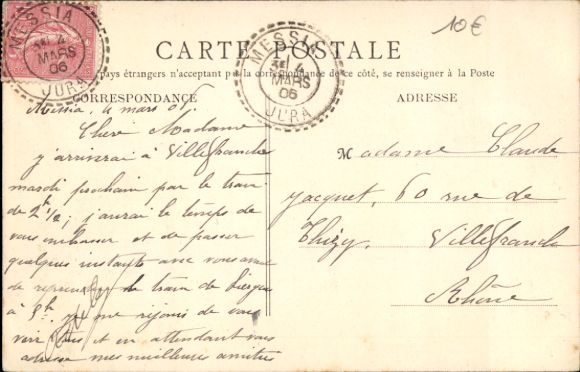 10€
MESSIA
4
MARS
06
JURA
MESSIA
4
MARS
06
JURA
CARTE POSTALE
pays étrangers n'acceptant pas la correspondance de ce côté, se renseigner à la Poste
CORRESPONDANCE
ADRESSE
Messia, 4 mars 06
Chère Madame
j'arriverai à Villefranche
mardi prochain par le train
de 2h 1/2; j'aurai le temps de
vous embrasser et de passer
quelques instants avec vous avant
de reprendre le train de
à 8h. je me réjouis de vous
voir et en attendant vous
adresse mes meilleures amitiés
Madame Claude
Jacquet, 60 rue de
Thizy, Villefranche
Rhône